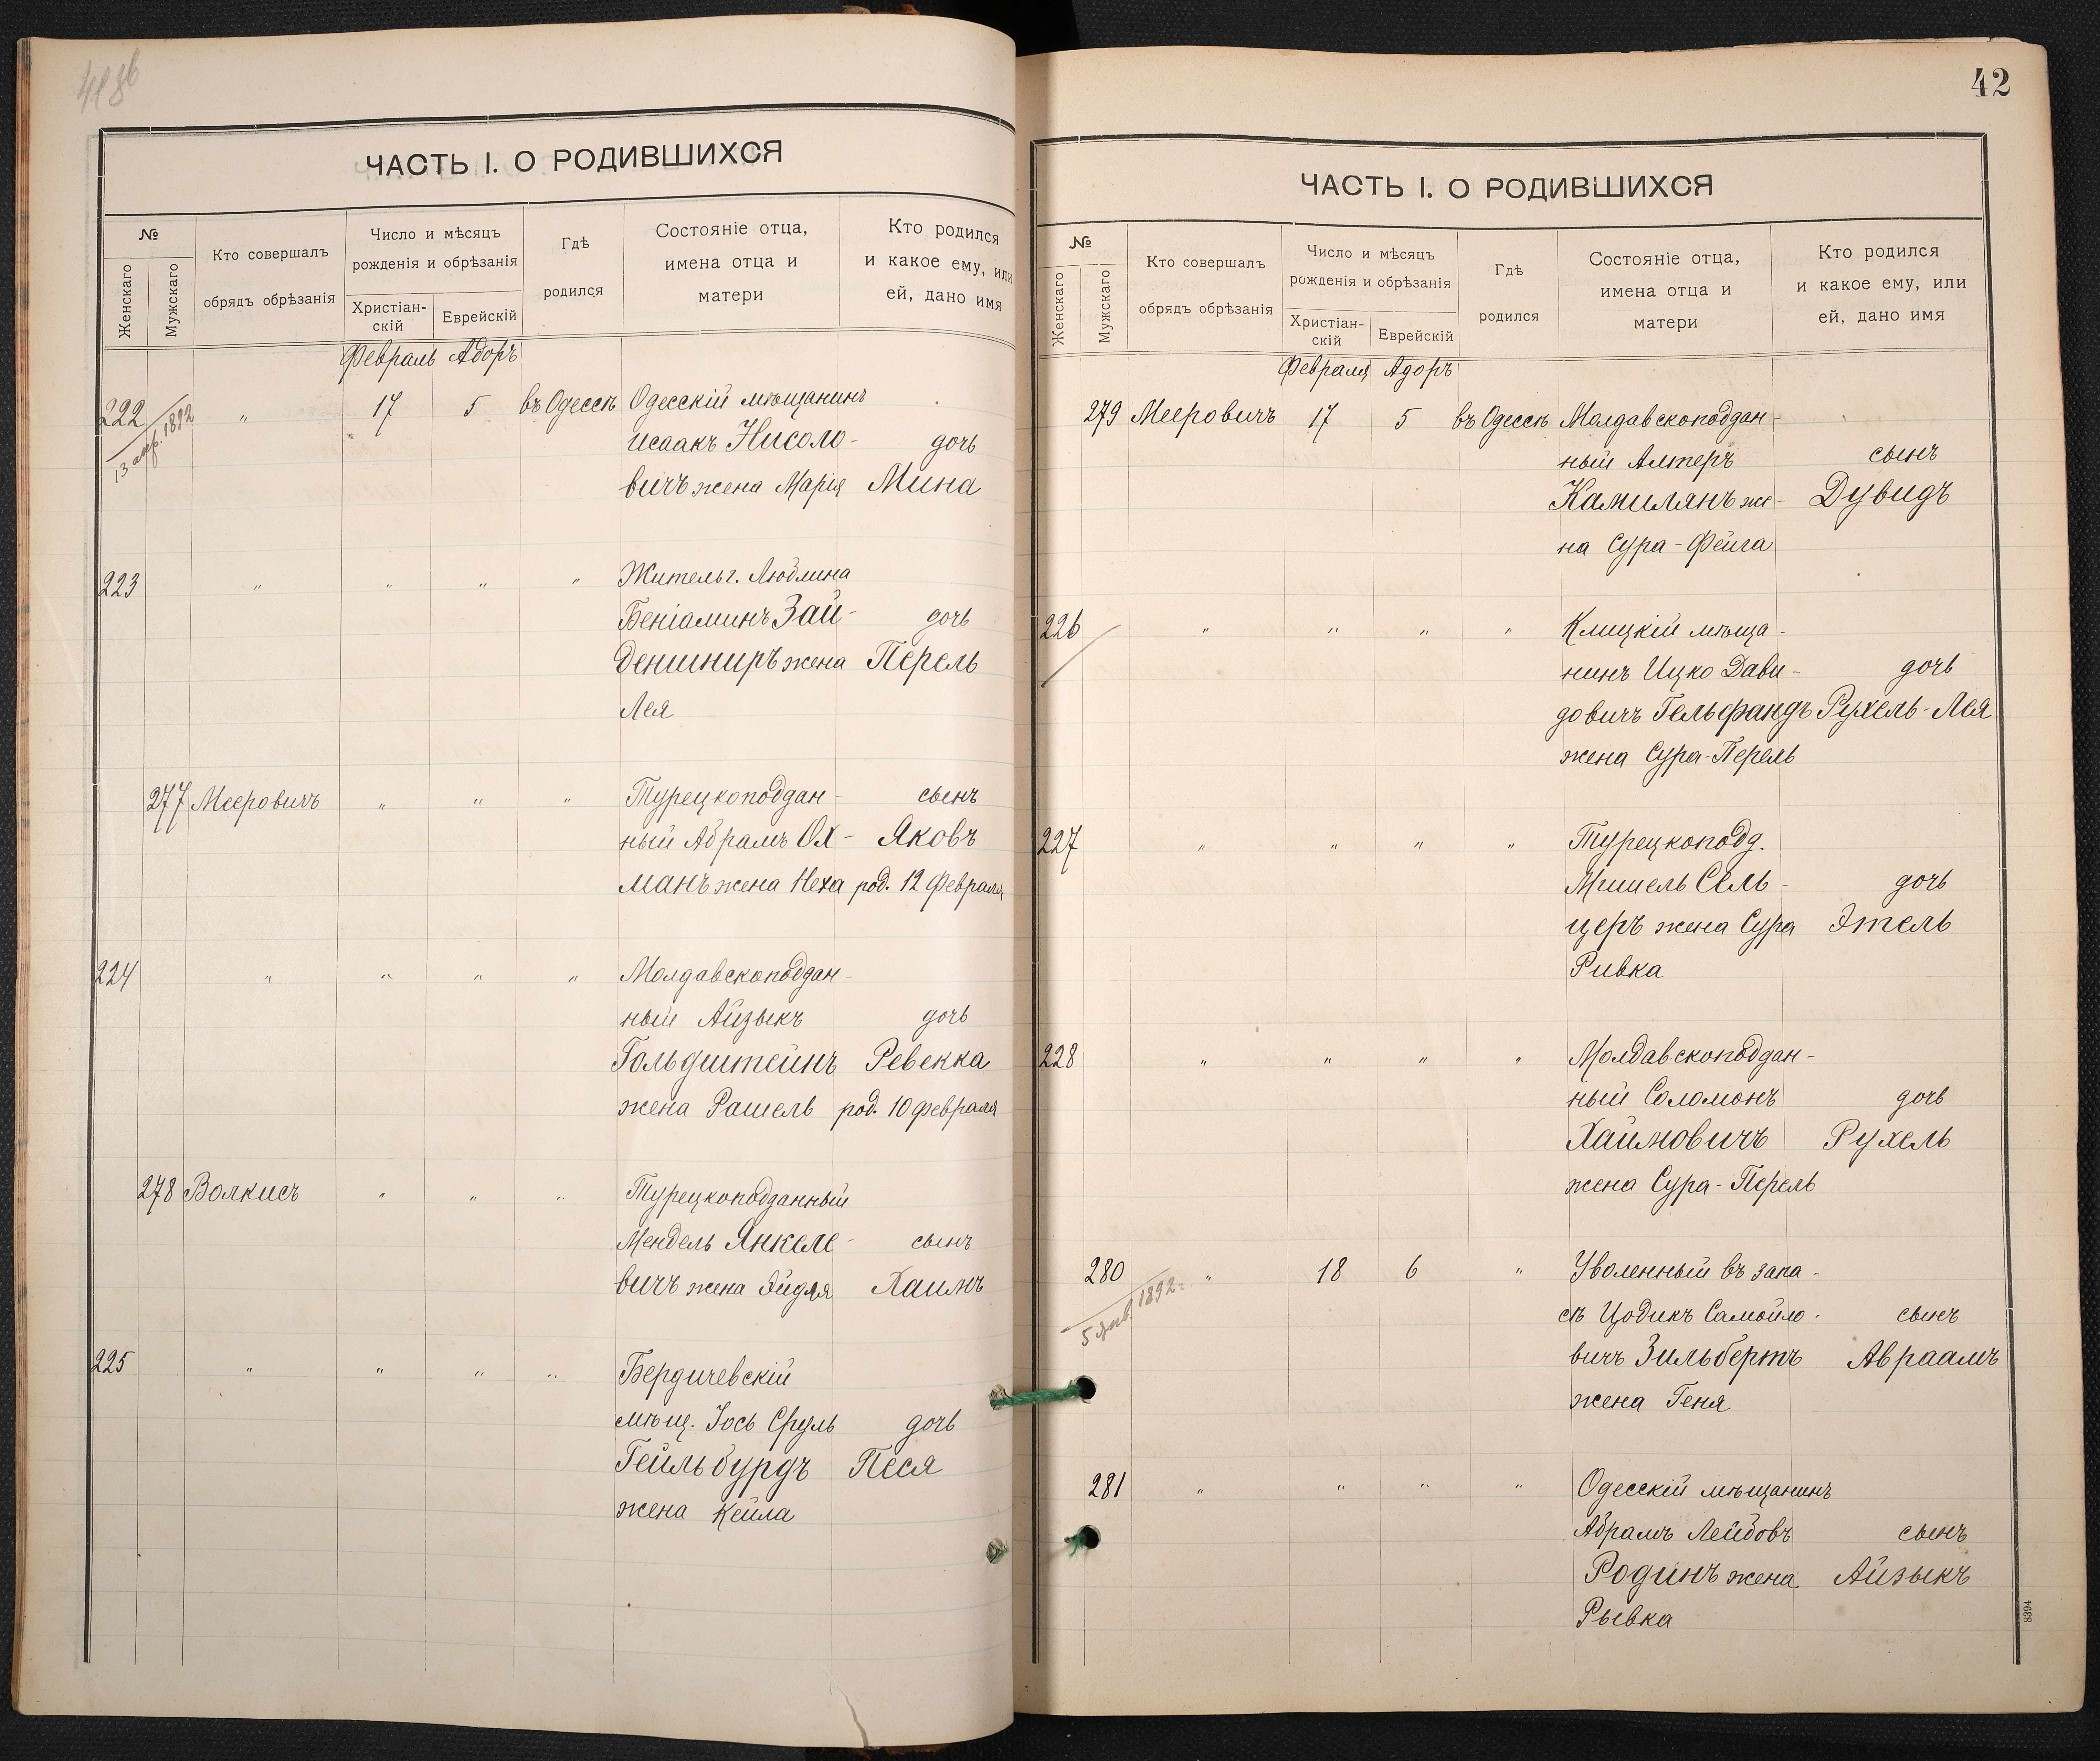 ЧАСТЬ I. О РОДИВШИХСЯ
№
Женскаго
Мужскаго
Кто совершалъ
обрядъ обрѣзанія
Число и мѣсяцъ
рожденія и обрѣзанія
Христіан-
скій
Еврейскій
Гдѣ
родился
Состояніе отца,
имена отца и
матери
Кто родился
и какое ему, или
ей, дано имя
Февраль Адоръ
222 " 17 5 въ Одессѣ Одесскій мѣщанинъ
13 апр. 1892
Исаакъ Нисоло- дочь
вичъ жена Марія Мина
223 " " " " Житель г. Люблина
Беніаминъ Зай- дочь
деншниръ жена Перель
Лея
277 Мееровичъ " " " Турецкоподдан- сынъ
ный Абрамъ Ох- Яковъ
манъ жена Неха род. 12 Февраля
224 " " " " Молдавскоподдан-
ный Айзыкъ дочь
Гольдштейнъ Ревекка
жена Рашель род. 10 февраля
278 Волкисъ " " " Турецкоподданный
Мендель Янкеле- сынъ
вичъ жена Эйдля Хаимъ
225 " " " " Бердичевскій
мѣщ. Іось Сруль дочь
Гейльбурдъ Песя
жена Кейла
42
ЧАСТЬ I. О РОДИВШИХСЯ
№
Женскаго
Мужскаго
Кто совершалъ
обрядъ обрѣзанія
Число и мѣсяцъ
рожденія и обрѣзанія
Христіан-
скій
Еврейскій
Гдѣ
родился
Состояніе отца,
имена отца и
матери
Кто родился
и какое ему, или
ей, дано имя
Февраля Адоръ
279 Мееровичъ 17 5 въ Одессѣ Молдавскоподдан-
ный Алтеръ сынъ
Камилянъ же- Дувидъ
на Сура-Фейга
226 " " " " Клицкій мѣща-
нинъ Ицко Дави- дочь
довичъ Гельфандъ Рухель-Лея
жена Сура-Перель
227 " " " " Турецкоподд.
Мишель Сель- дочь
церъ жена Сура Этель
Ривка
228 " " " " Молдавскоподдан-
ный Соломонъ дочь
Хаимовичъ Рухель
жена Сура-Перель
280 " 18 6 " Уволенный въ запа-
5 янв. 1892 г.
сѣ Цодикъ Самойло- сынъ
вичъ Зильбертъ Авраамъ
жена Геня
281 " " " " Одесскій мѣщанинъ
Абрамъ Лейбовъ сынъ
Родинъ жена Айзыкъ
Рывка
8394